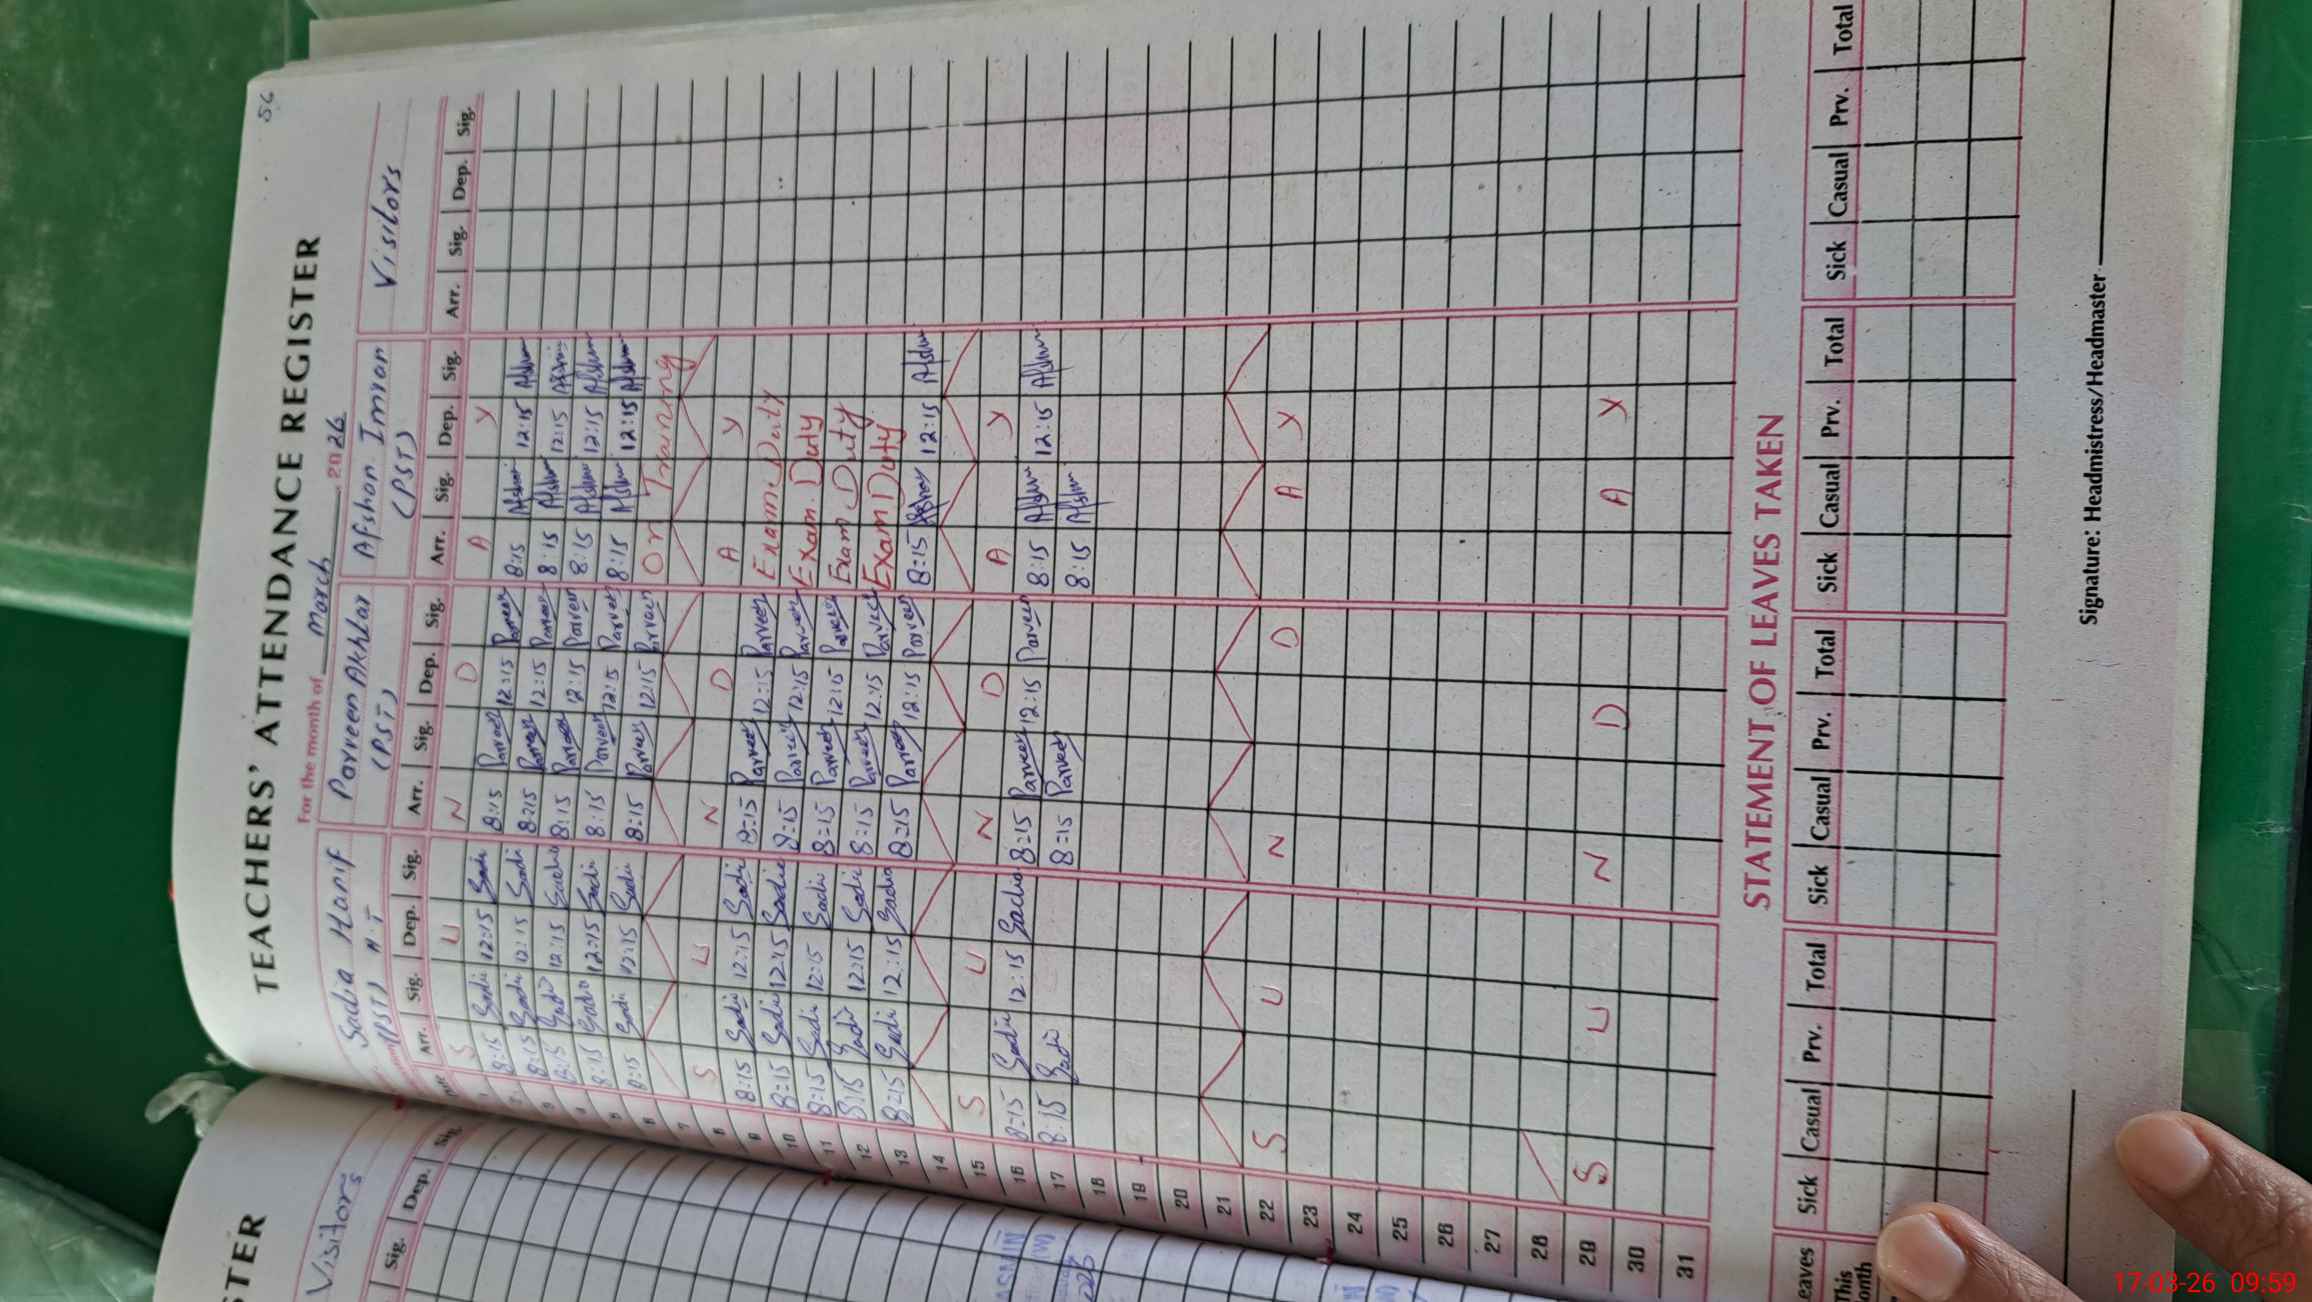 56
TEACHERS' ATTENDANCE REGISTER
For the month of March 2026
Sadia Hanif Parveen Akhtar Afshan Imran Visitors
(PST) H.T (PST) (PST)
Arr. Sig. Dep. Sig. Arr. Sig. Dep. Sig. Arr. Sig. Dep. Sig. Arr. Sig. Dep. Sig.
1 S U N D A Y
2 8:15 Sadi 12:15 Sadi 8:15 Parveen 12:15 Parveen 8:15 Afshan 12:15 Afshan
3 8:15 Sadi 12:15 Sadi 8:15 Parveen 12:15 Parveen 8:15 Afshan 12:15 Afshan
4 8:15 Sadi 12:15 Sadi 8:15 Parveen 12:15 Parveen 8:15 Afshan 12:15 Afshan
5 8:15 Sadi 12:15 Sadi 8:15 Parveen 12:15 Parveen 8:15 Afshan 12:15 Afshan
6 8:15 Sadi 12:15 Sadi 8:15 Parveen 12:15 Parveen On Training
7
8 S U N D A Y
9 8:15 Sadi 12:15 Sadi 8:15 Parveen 12:15 Parveen Exam Duty
10 8:15 Sadi 12:15 Sadia 8:15 Parveen 12:15 Parveen Exam. Duty
11 8:15 Sadi 12:15 Sadi 8:15 Parveen 12:15 Parveen Exam Duty
12 8:15 Sadi 12:15 Sadi 8:15 Parveen 12:15 Parveen Exam Duty
13 8:15 Sadi 12:15 Sadia 8:15 Parveen 12:15 Parveen 8:15 Afshan 12:15 Afshan
14
15 S U N D A Y
16 8:15 Sadi 12:15 Sadia 8:15 Parveen 12:15 Parveen 8:15 Afshan 12:15 Afshan
17 8:15 Sadi 8:15 Parveen 8:15 Afshan
18
19
20
21
22 S U N D A Y
23
24
25
26
27
28
29 S U N D A Y
30
31
STATEMENT OF LEAVES TAKEN
Leaves Sick Casual Prv. Total Sick Casual Prv. Total Sick Casual Prv. Total Sick Casual Prv. Total
This
Month
Signature: Headmistress/Headmaster
STER
Visitors
Sig. Dep. Sig.
17-03-26 09:59